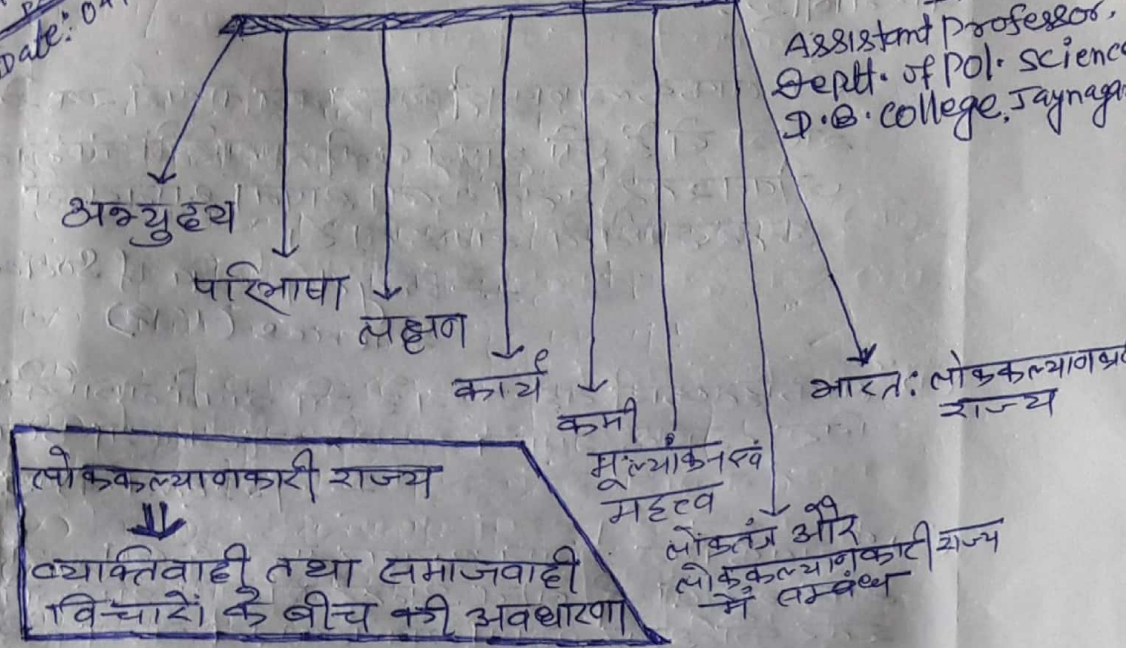 Date: 04
Assistant Professor,
Deptt. of Pol. Science
D.B. College, Jaynaga
अभ्युदय
परिभाषा
लक्षण
कार्य
कमी
मूल्यांकन एवं
महत्व
लोकतंत्र और
लोककल्याणकारी राज्य
में सम्बंध
भारत: लोककल्याणका
राज्य
लोककल्याणकारी राज्य
व्यक्तिवादी तथा समाजवादी
विचारों के बीच की अवधारणा